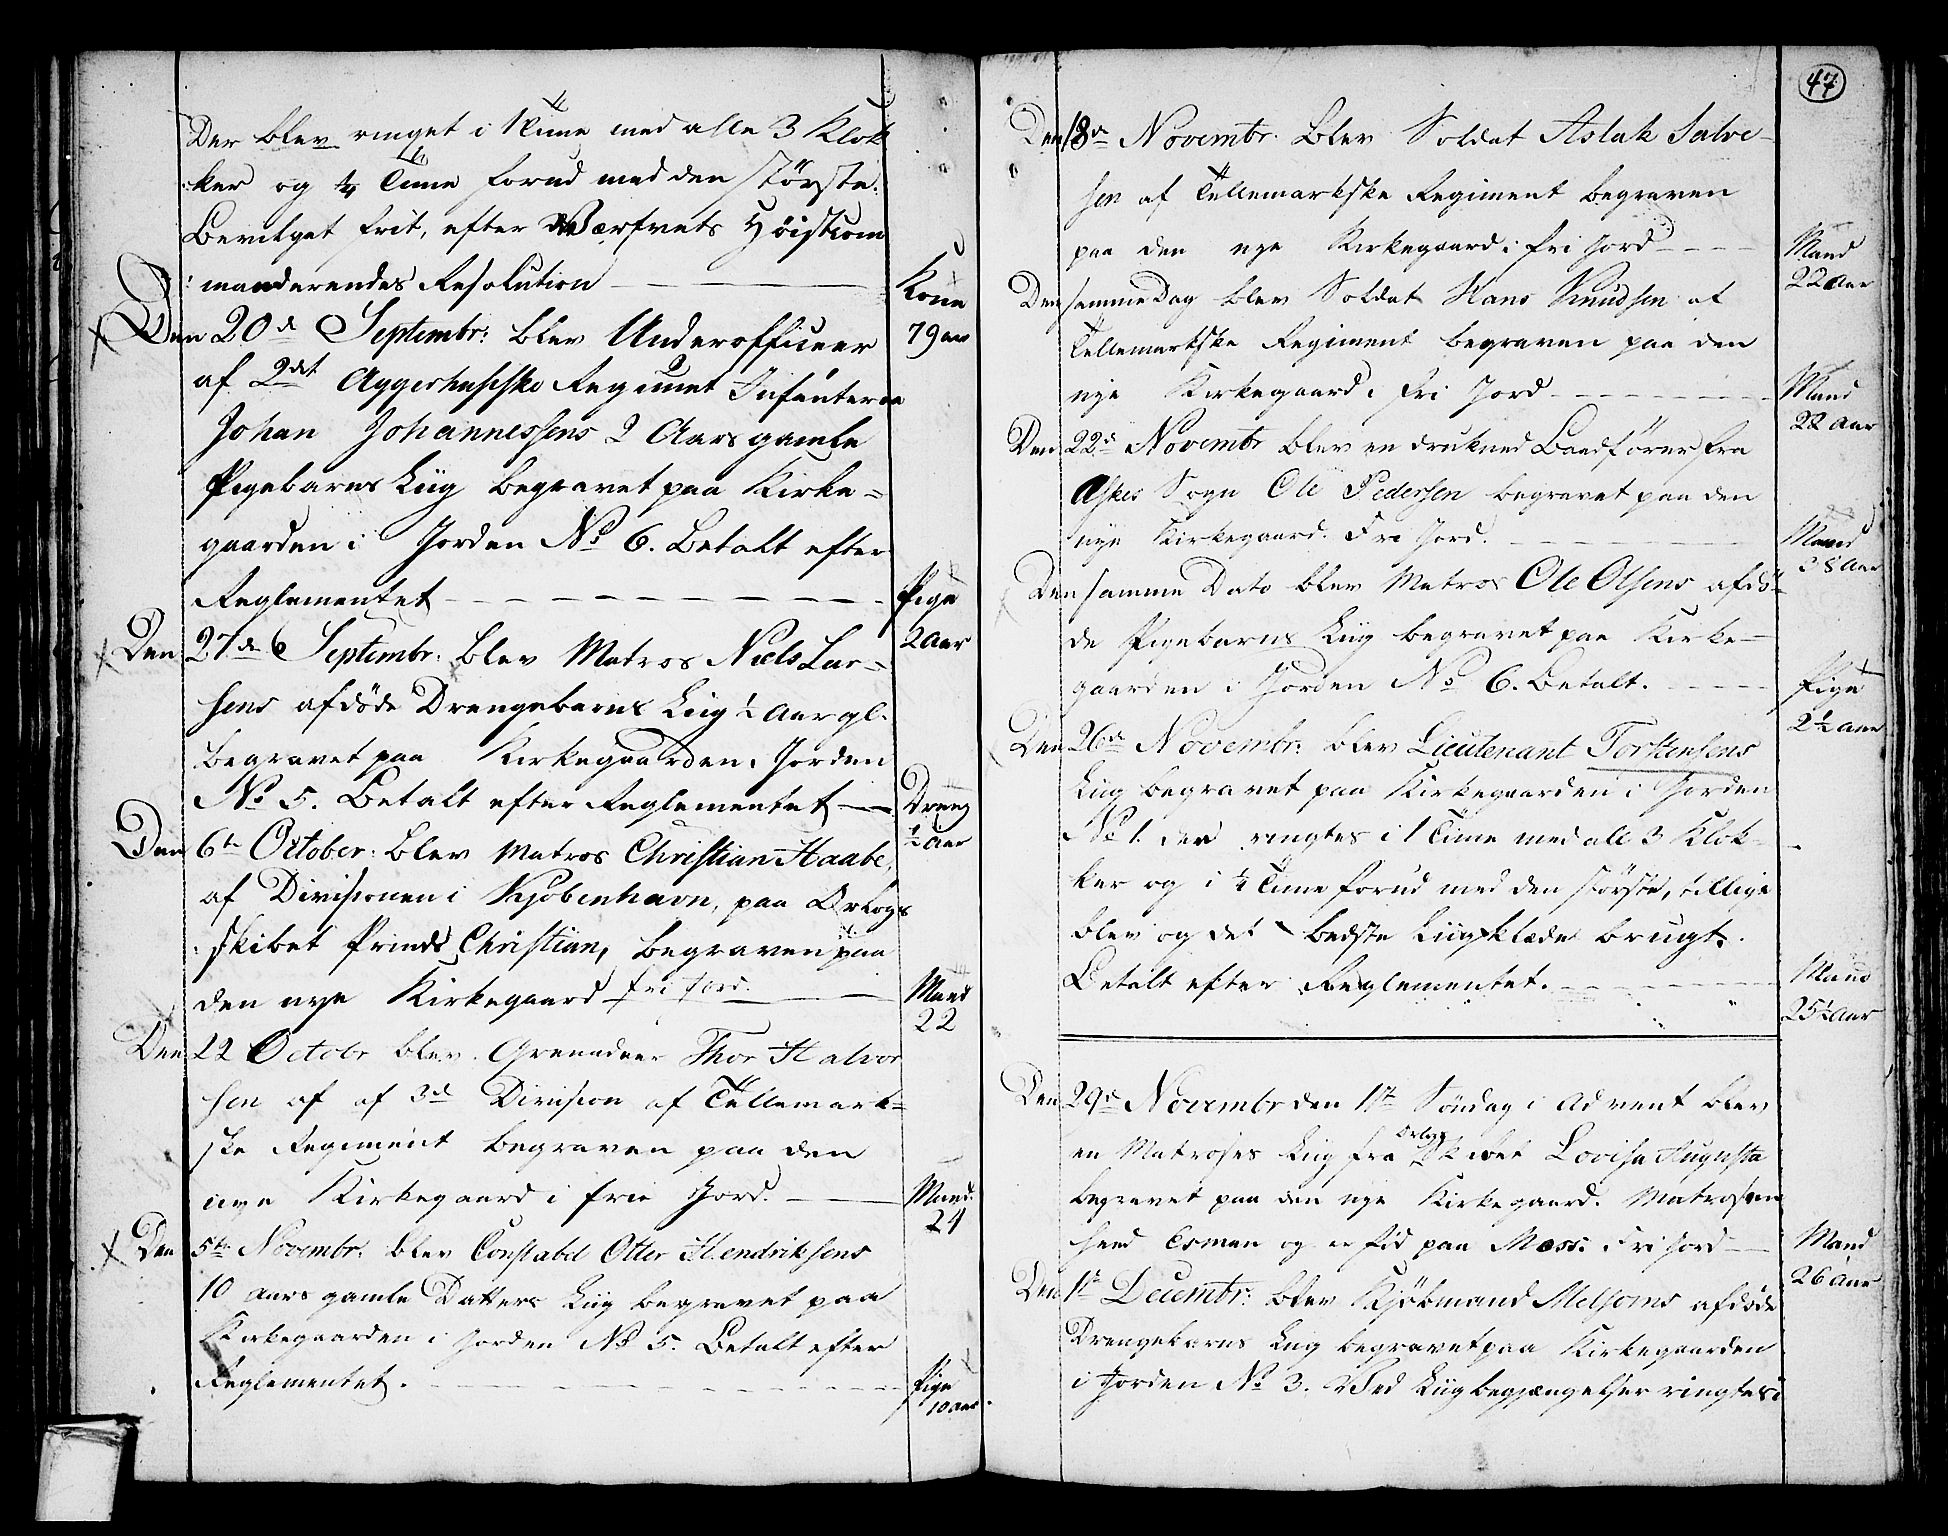 Der blev ringet i 1 Time med alle 3 Klok
ker og ¼ Time forud med den største.
Bevilget frit, efter Værfvets Høistcom
manderendes Resolution
Kone
79 aar
Den 20de Septembr: blev Underofficeer
af 2det Aggershusiske Regiment Infanterie
Johan Johannessens 2 Aars gamle
Pigebarns Liig begravet paa Kirke=
gaarden i Jorden No 6. Betalt efter
Reglementet
Pige
2 Aar
Den 27de Septembr. blev Matros Niels Lar-
sens afdøde Drengebarns Liig ½ Aar gl.
begravet paa Kirkegaarden i Jorden
No 5. Betalt efter Reglementet
Dreng
½ Aar
Den 6te October: blev Matros Christian Haabe,
af Divisionen i Kjøbenhavn, paa Orlogs
skibet Prinds Christian, begraven paa
den nye Kirkegaard fri Jord.
Mand
22
Den 22 Octobr blev Grenadeer Thor Halvor
sen af af 3de Division af Tellemark=
ske Regiment begraven paa den
nye Kirkegaard i frie Jord.
Mand
24
Den 5te Novembr. blev Constabel Otter Hendriksens
10 aars gamle Datters Liig begravet paa
Kirkegaarden i Jorden No 5. Betalt efter
Reglementet.
Pige
10 aar.
47
Den 18de Novembr. blev Soldat Aslak Salve-
sen af Tellemarkske Regiment begraven
paa den nye Kirkegaard i fri Jord
Mand
22 Aar
Den samme Dag blev Soldat Hans Knudsen af
Tellemarkske Regiment begraven paa den
nye Kirkegaard i fri Jord
Mand
22 Aar
Den 22de Novembr blev en drukned Baadfører fra
Askers Sogn Ole Pedersen begravet paa den
nye Kirkegaard. Fri Jord.
Mand
38 Aar
Den samme Dato blev Matros Ole Olsens afdø-
de Pigebarns Liig begravet paa Kirke-
gaarden i Jorden No 6. Betalt.
Pige
2½ Aar
Den 26de Novembr: blev Lieutenant Torstensens
Liig begravet paa Kirkegaarden i Jorden
No 1. der ringtes i 1 Time med alle 3 Klok-
ker og i ¼ Time forud med den største, tillige
blev og det bedste Liigklæde brugt.
Betalt efter Reglementet.
Mand
25½ Aar
Den 29de Novembr den 1te Søndag i Advent blev
en Matroses Liig fra Orlogs Skibet Lovisa Augusta
begravet paa den nye Kirkegaard. Matrosen
heed Esman og er fød paa Moss. Fri Jord
Mand
26 Aar
Den 1te Decembr: blev Kjøbmand Melsoms afdøde
Drengebarns Liig begravet paa Kirkegaarden
i Jorden No 3. Ved Liigbegjængelsen ringtes i